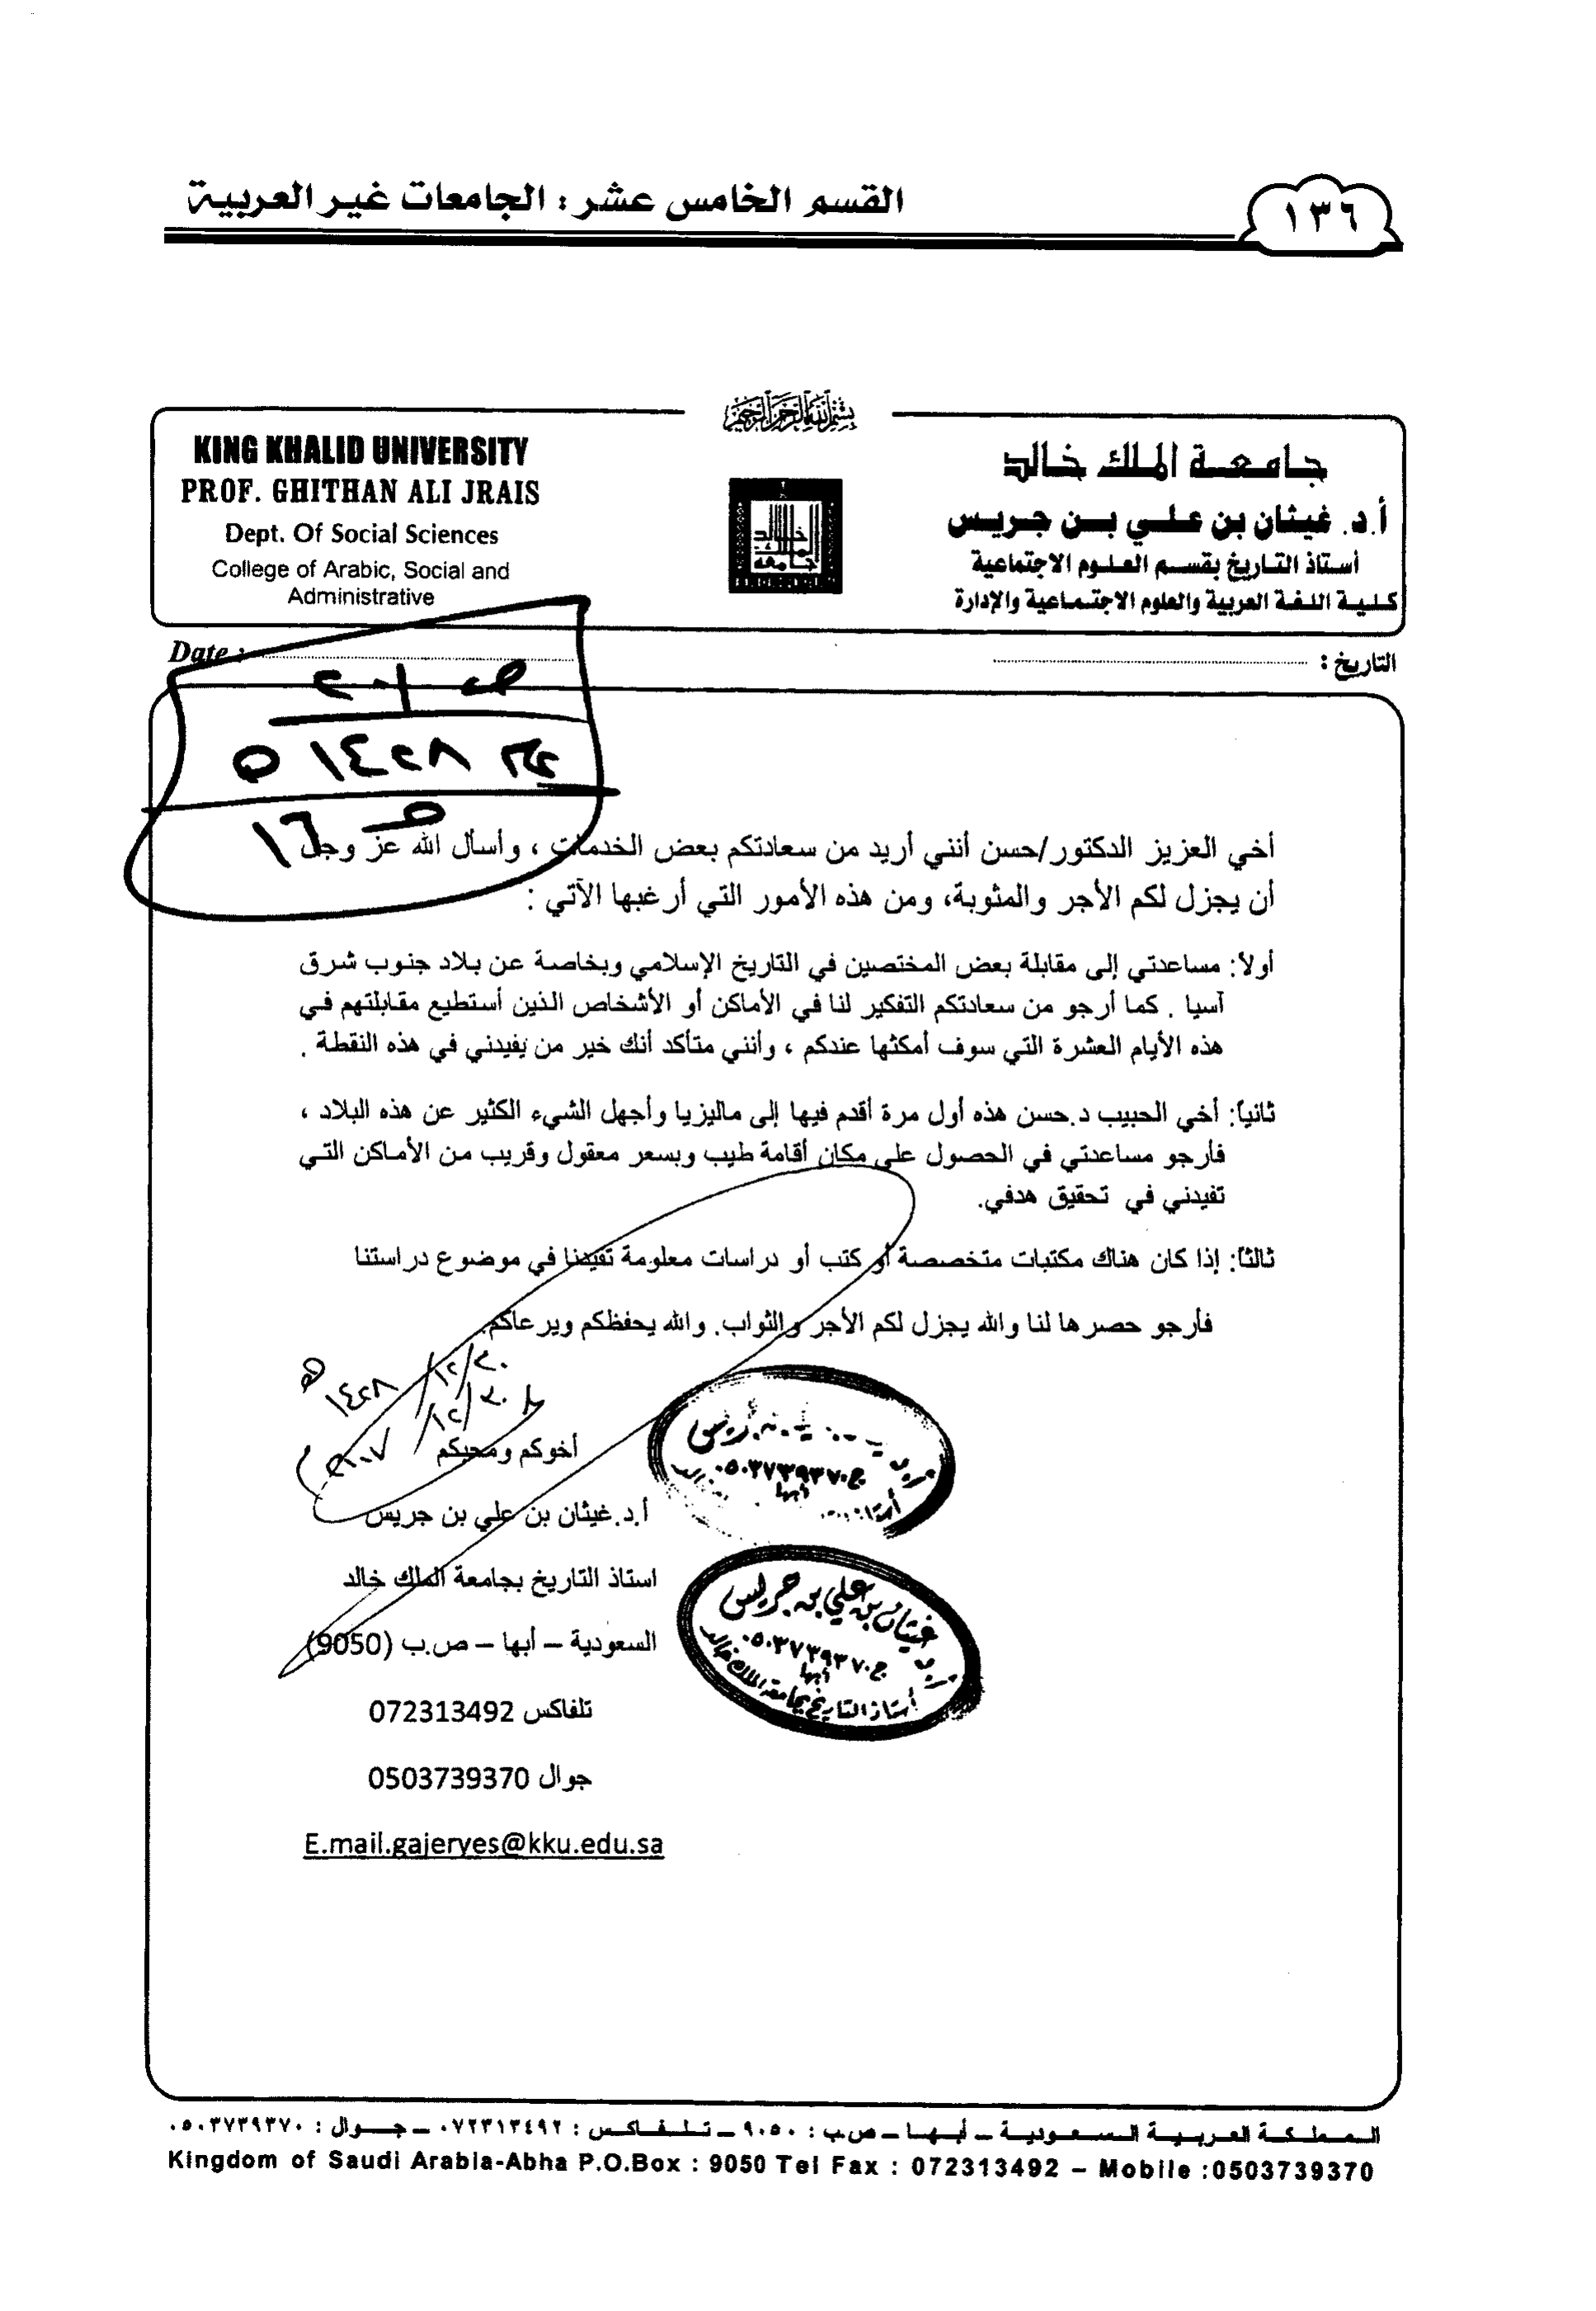 القسم الخامس عشر : الجامعات غير العربية
١٣٦
بسم الله الرحمن الرحيم
KING KHALID UNIVERSITY
PROF. GHITHAN ALI JRAIS
Dept. Of Social Sciences
College of Arabic, Social and
Administrative
جامعة الملك خالد
أ.د. غيثان بن علي بن جريس
أستاذ التاريخ بقسم العلوم الاجتماعية
كلية اللغة العربية والعلوم الاجتماعية والإدارة
جامعة الملك خالد
Date :
التاريخ :
١٤٢٨ هـ
ص ١٦
أخي العزيز الدكتور/حسن أنني أريد من سعادتكم بعض الخدمات ، وأسأل الله عز وجل
أن يجزل لكم الأجر والمثوبة، ومن هذه الأمور التي أرغبها الآتي :
أولاً: مساعدتي إلى مقابلة بعض المختصين في التاريخ الإسلامي وبخاصة عن بلاد جنوب شرق
آسيا . كما أرجو من سعادتكم التفكير لنا في الأماكن أو الأشخاص الذين أستطيع مقابلتهم في
هذه الأيام العشرة التي سوف أمكثها عندكم ، وأنني متأكد أنك خير من يفيدني في هذه النقطة .
ثانياً: أخي الحبيب د.حسن هذه أول مرة أقدم فيها إلى ماليزيا وأجهل الشيء الكثير عن هذه البلاد ،
فأرجو مساعدتي في الحصول على مكان أقامة طيب وبسعر معقول وقريب من الأماكن التي
تفيدني في تحقيق هدفي.
ثالثاً: إذا كان هناك مكتبات متخصصة أو كتب أو دراسات معلومة تفيدنا في موضوع دراستنا
فأرجو حصرها لنا والله يجزل لكم الأجر والثواب. والله يحفظكم ويرعاكم.
٢٠/١٢/١٤٢٨ هـ
٣٠/١٢/٢٠٠٧ م
أخوكم ومحبكم
أ.د.غيثان بن علي بن جريس
استاذ التاريخ بجامعة الملك خالد
السعودية – أبها – ص.ب (9050)
تلفاكس 072313492
جوال 0503739370
E.mail.gajeryes@kku.edu.sa
ج٠٥٠٣٧٣٩٣٧٠
أبها
غيثان بن علي بن جريس
ج٠٥٠٣٧٣٩٣٧٠
أبها
أستاذ التاريخ بجامعة الملك خالد
المملكة العربية السعودية – أبها – ص.ب : ٩٠٥٠ – تلفاكس : ٠٧٢٣١٣٤٩٢ – جوال : ٠٥٠٣٧٣٩٣٧٠
Kingdom of Saudi Arabia-Abha P.O.Box : 9050 Tel Fax : 072313492 – Mobile :0503739370